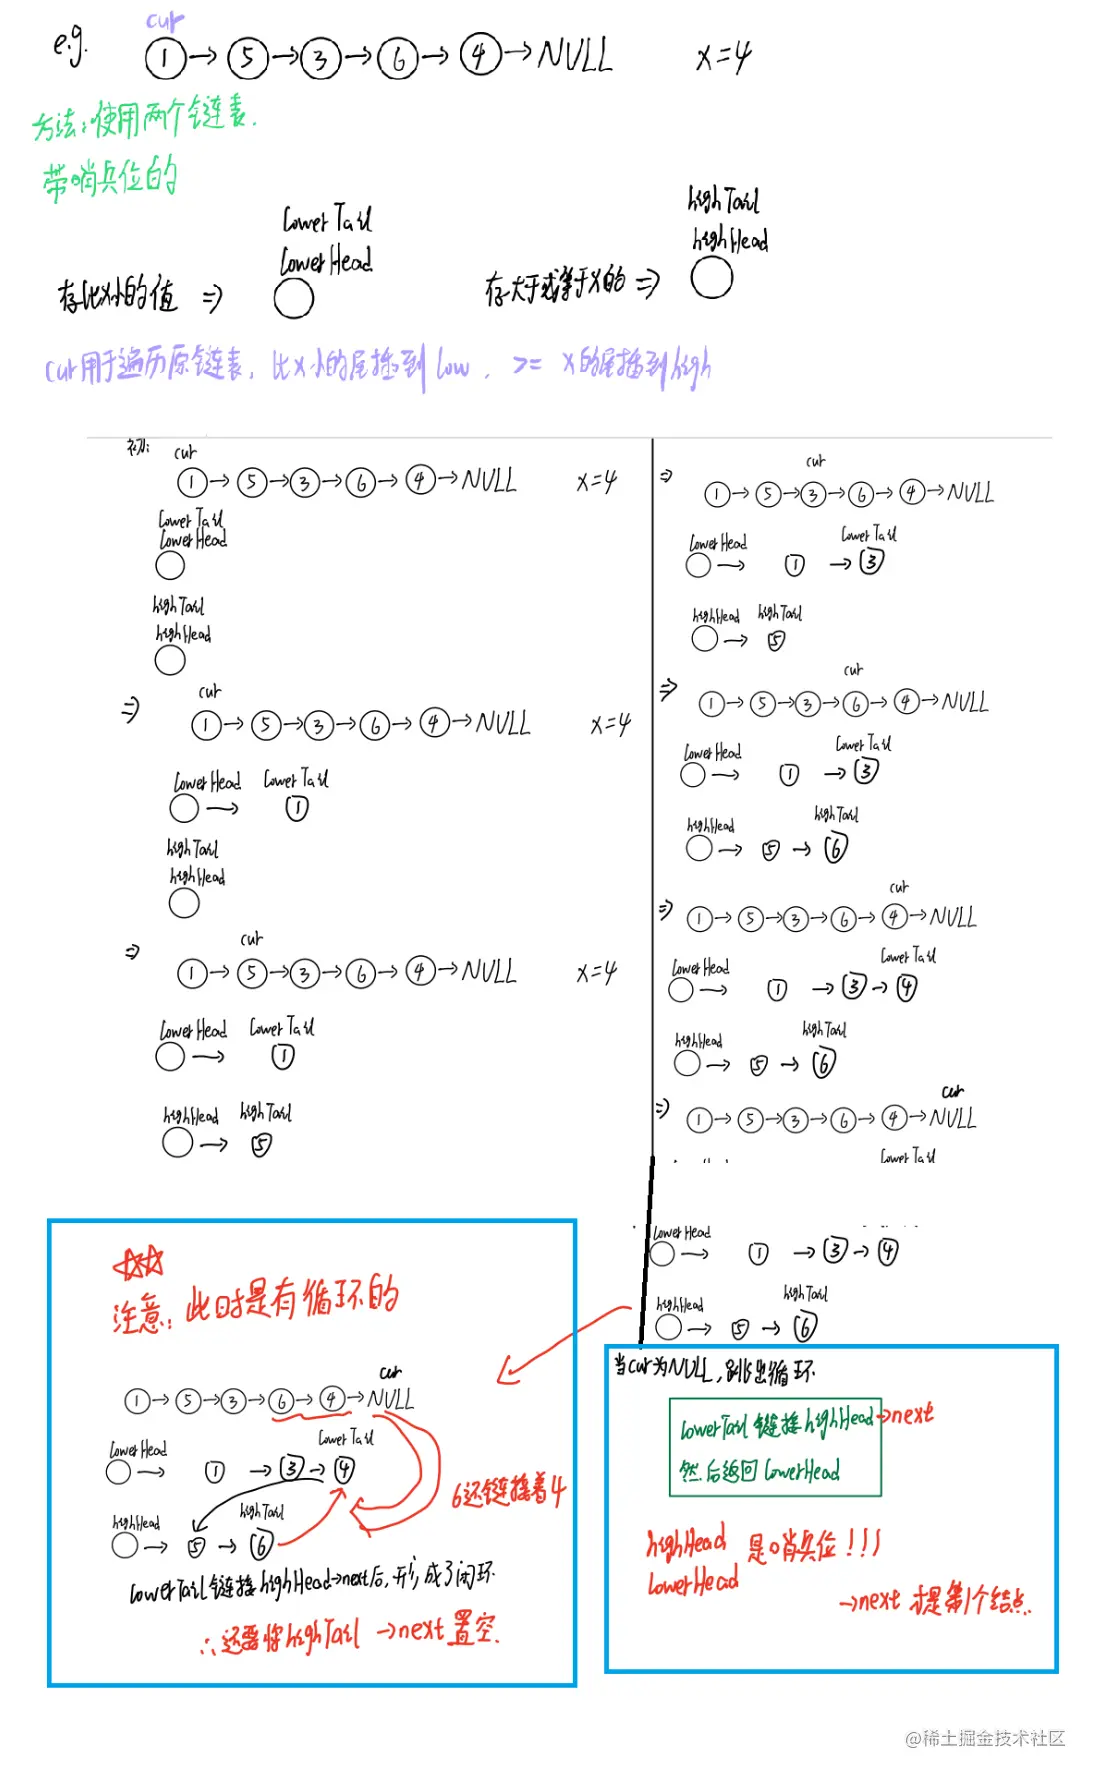 e.g.
cur
1 → 5 → 3 → 6 → 4 → NULL x=4
方法:使用两个链表.
带哨兵位的
lowerTail
lowerHead
存比x小的值 ⇒
highTail
highHead
存大于或等于x的 ⇒
cur用于遍历原链表, 比x小的尾插到low, >= x的尾插到high
初:
cur
1 → 5 → 3 → 6 → 4 → NULL x=4
lowerTail
lowerHead
highTail
highHead
⇒
cur
1 → 5 → 3 → 6 → 4 → NULL x=4
lowerHead lowerTail
→ 1
highTail
highHead
⇒
cur
1 → 5 → 3 → 6 → 4 → NULL x=4
lowerHead lowerTail
→ 1
highHead highTail
→ 5
⇒
cur
1 → 5 → 3 → 6 → 4 → NULL
lowerHead lowerTail
→ 1 → 3
highHead highTail
→ 5
⇒
cur
1 → 5 → 3 → 6 → 4 → NULL
lowerHead lowerTail
→ 1 → 3
highHead highTail
→ 5 → 6
⇒
cur
1 → 5 → 3 → 6 → 4 → NULL
lowerHead lowerTail
→ 1 → 3 → 4
highHead highTail
→ 5 → 6
⇒
cur
1 → 5 → 3 → 6 → 4 → NULL
lowerTail
lowerHead
→ 1 → 3 → 4
highHead highTail
→ 5 → 6
注意:此时是有循环的
cur
1 → 5 → 3 → 6 → 4 → NULL
lowerHead lowerTail
→ 1 → 3 → 4
6还链接着4
highHead highTail
→ 5 → 6
lowerTail链接highHead→next后,形成了闭环
∴还要将highTail →next置空.
当cur为NULL,跳出循环
lowerTail链接highHead→next
然后返回lowerHead
highHead
lowerHead
是哨兵位!!!
→next才是第1个结点.
@稀土掘金技术社区